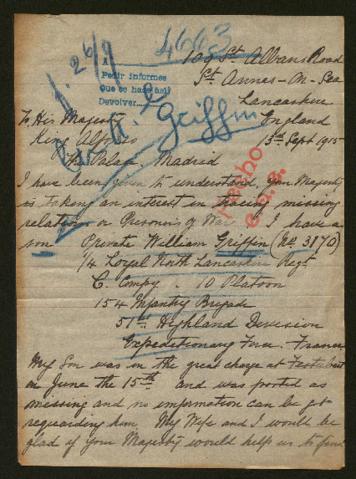 4663
A
Pedir informes
Que se hace así
Devolver
J. 26/9
Griffin
109 St Albans Road
St. Annes-On-Sea
Lancashire
England
To His Majesty
King Alfonso
The Palace, Madrid
13th Sept 1915
I have been given to understand, Your Majesty
is taken an interest in tracing missing
relatives or Prisoners of War. I have a
son Private William Griffin (No. 3870)
1/4 Loyal North Lancashire Regt
C. Compy. 10 Platoon
154 Infantry Brigade
51st Highland Devision
Expeditionary Force. France
My Son was in the great charge at Festubert
in June the 15th and was ported as
missing and no information can be got
reguarding him. My Wife and I would be
glad if Your Majesty would help us to find